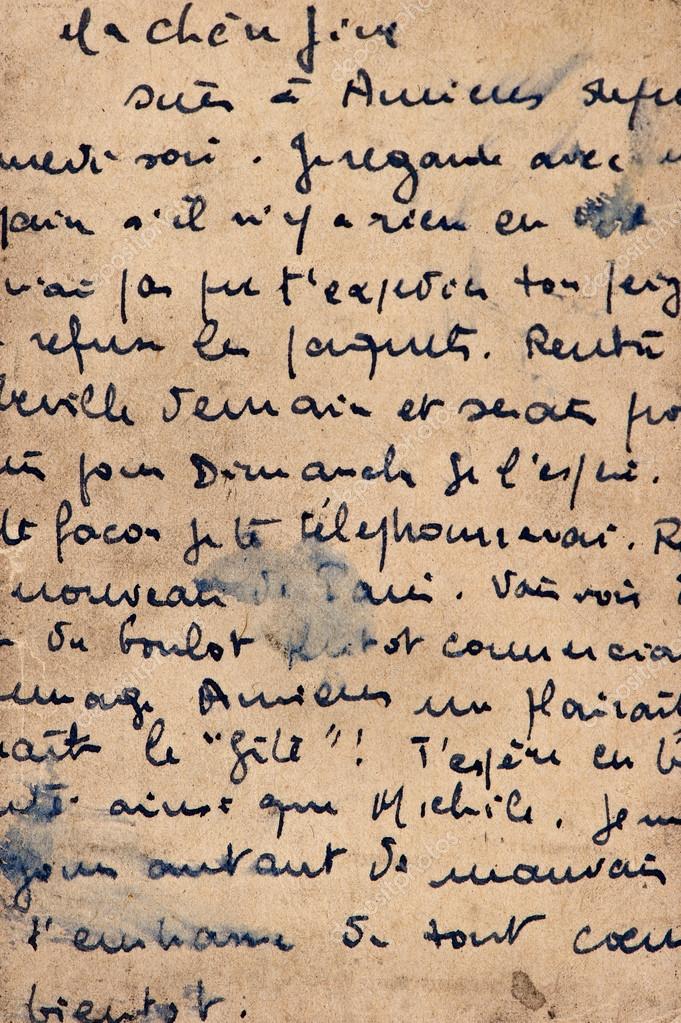 Ma chère
suis à Amiens depu
medi soir. Je regarde avec
s'il n'y a rien en
n'ai pas pu t'expédier ton peig
refuse les paquets. Rentre
beville demain et serais
pour Dimanche je l'espère.
te façon je te téléphonerai. R
nouveau de Paris. Vais voir
du boulot plutôt commercia
Amiens me plairait
rait le "gîte"! T'espère en b
ainsi que Michèle. Je
autant de mauvais
t'embrasse de tout coeu
bientôt.